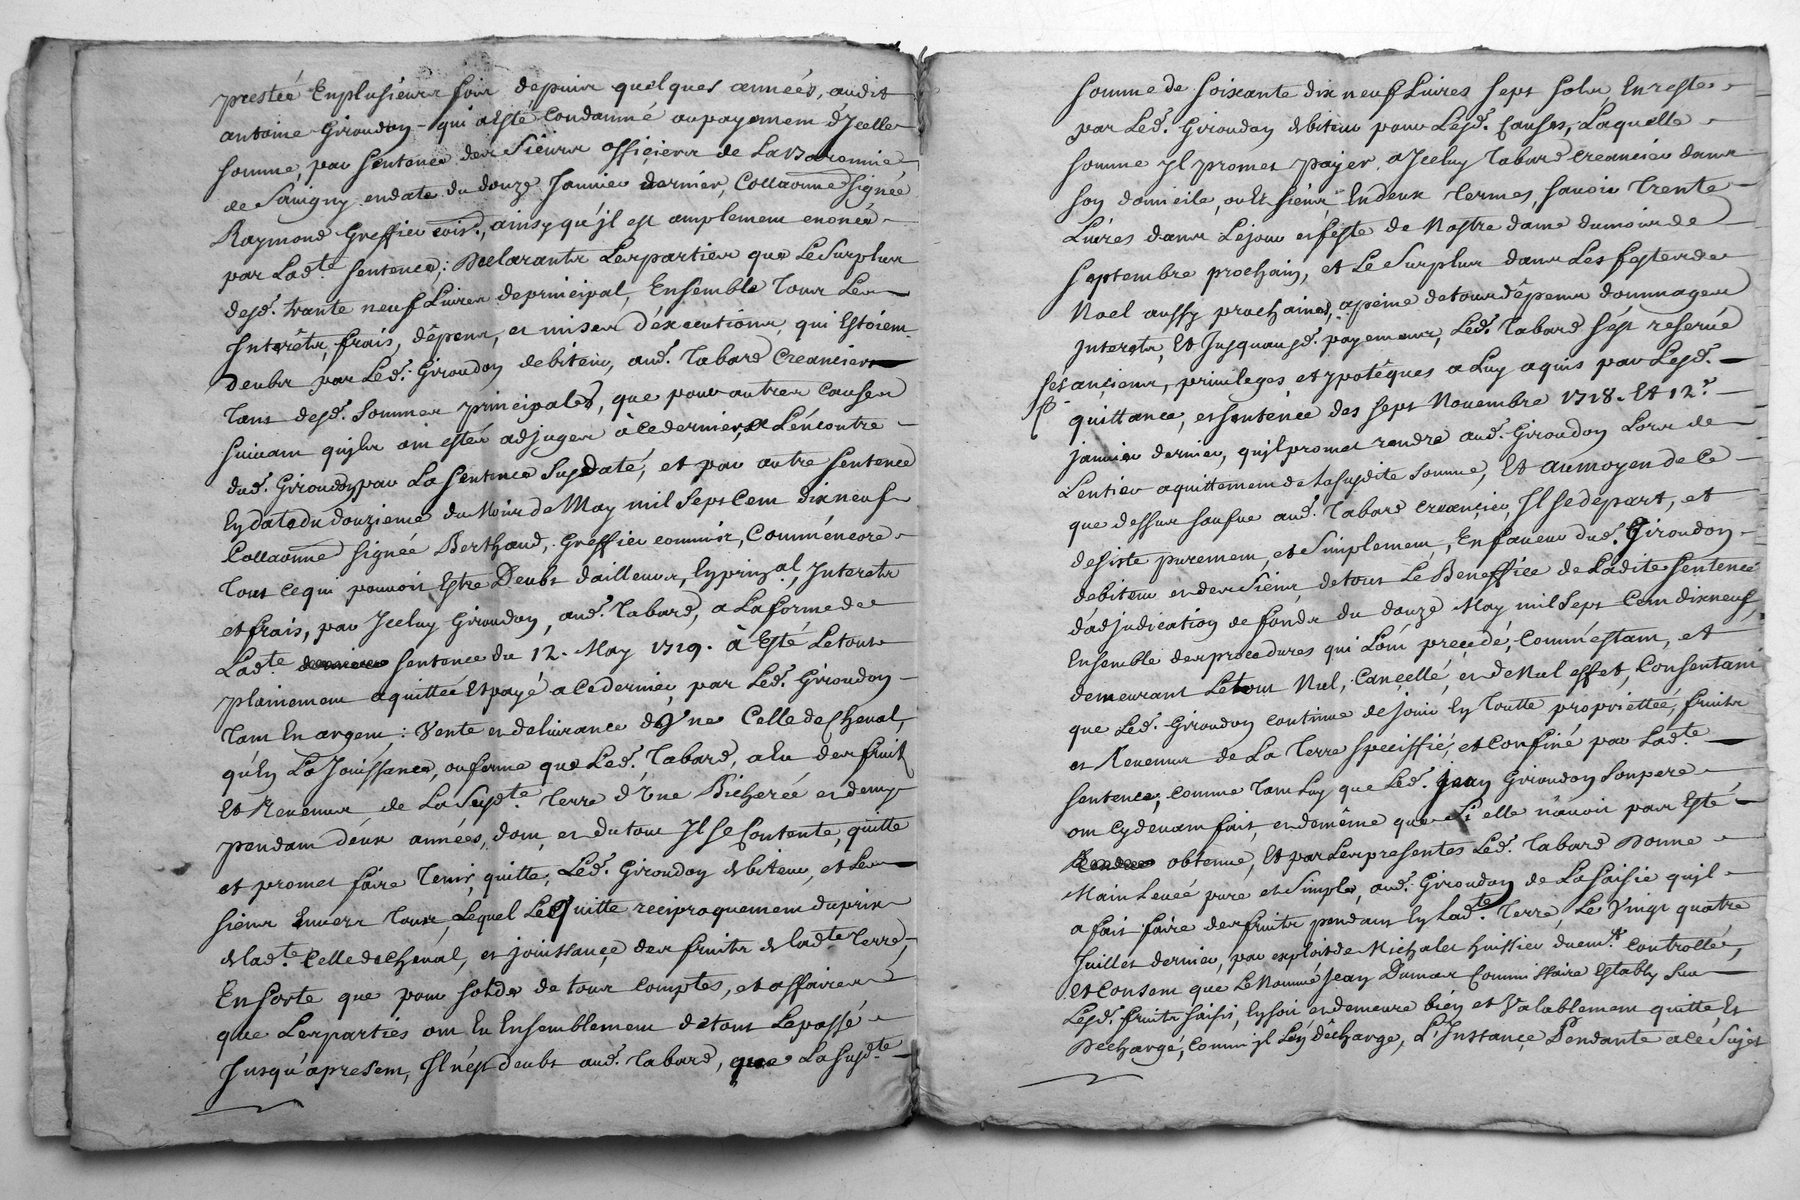 prestée Enplusieurs fois depuis quelques années, audit
antoine Giroudon - qui a esté Condamné au payement d'Jcelle
somme, par sentence des Sieurs officiers de La Baronnie
de Savigny endate du douze Janvier dernier, Collaonné signée
Raymond Greffier com.is, ainsy qu'jl est amplement enoncé
par Ladte sentence: Declarants Lesparties que Le Surplus
desd. trante neuf Livres deprincipal, Ensemble Tous Les
Interêts, frais, dêpens, et mises d'éxecutions, qui Estoient
deubs par Led. Giroudon debiteur, aud. Tabard Creancier
Tant desd. Sommes principales, que pour autres Causes
suivant quijls ont estés adjuges à ce dernier, a L'encontre
dud. Giroudon par La sentence Susdaté, et par autre sentence
En date du douzieme du Mois de May mil Sept Cent dix neuf
Collaonné signée Berthaud, Greffier commis, Comm'encore
Tout ce qui pouvoit Estre Deubt d'ailleurs, En prinal, Interets
et frais, par Jceluy Giroudon, aud. Tabard, a La forme de
Ladte sentence du 12. May 1719. à Esté Le tout
plainement aquittée Et payé a ce dernier, par Led. Giroudon
Tant En argent: Vente en delivrance d'Vne Celle de Cheval,
qu'En La Jouissance, ou ferme que Led. Tabard, a Eu des fruits
Et Revenus de La Susdte Terre d'Vne Bicherée en demy
pendant deux années, dont, et du tout Jl se Contente, quitte
et promet faire Tenir quitte, Led. Giroudon debiteur, et Les
siens Envers Tous, Lequel Le Quitte reciproquement du prix
de ladte Celle de Cheval, et jouissance des fruits de ladte Terre,
En sorte que pour solde de tous comptes, et affaires
que Les parties ont Eu Ensemblement de tout Le passé
Jusqu'apresent, Jl n'est deubt aud. Tabard, que La Susdte
somme de soixante dix neuf Livres sept sols, En reste
par Led. Giroudon debiteur pour Lesd. Causes, Laquelle
somme Jl promet payer a Jceluy Tabard Creancier dans
son domicile, ou Et siens, En deux Termes, savoir Trente
Livres dans Le jour et feste de Nostre dame du mois de
Septembre prochain, et Le Surplus dans Les festes de
Noel aussy prochaines, a peine de tous dêpens dommages
Interets, Et Jusquausd. payements, Led. Tabard s'est reservé
ses anciens, privileges et ypotêques a Luy aquis par Lesd.
quittance, et sentence des sept Novembre 1718. Et 12.e
janvier dernier, qu'jl promet rendre aud. Giroudon Lors de
L'entier aquittement de La susdite somme, Et au moyen de Ce
que dessus saufve aud. Tabard creancier, Jl se départ, et
desiste purement, et Simplement, En faveur dud. Giroudon
debiteur en des Siens de tout Le Beneffice de Ladite Sentence
d'adjudication de fonds du douze May mil Sept Cent dix neuf,
Ensemble des procedures qui L'ont precedé, Comm'estant, et
demeurant Le tout Nul, Cancellé, et de Nul effet, Consentant
que Led. Giroudon continue de jouir En Toutte propriettée, fruits
et Revenus de La Terre speciffié, et Confiné par Ladte
sentence; comme Tant Luy que Led. Jean Giroudon Son pere
ont Cydevant fait, et de même que Si elle n'avoit pas Esté
obtenue, Et par Les presentes Led. Tabard Donne
Main Levée pure et Simple, aud. Giroudon de La saisie qu'jl
a fait faire des fruits pendants En Ladte Terre, Le Vingt quatre
Juillet dernier, par exploit de Michalet huissier duemt Controllée,
Et Consent que Le Nommé Jean Dumas Commissaire Estably Sur
Lesd. fruits saisis, En soit et demeure bien et Valablement quitte, Et
Dechargé, Comm'jl L'En Décharge, L'Instance Pendante a ce Sujet